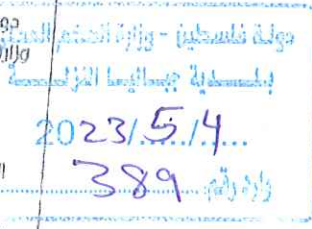 دولة فلسطين - وزارة الحكم المحلي
بلدية جباليا النزلة
2023/5/4
وارد رقم: 389